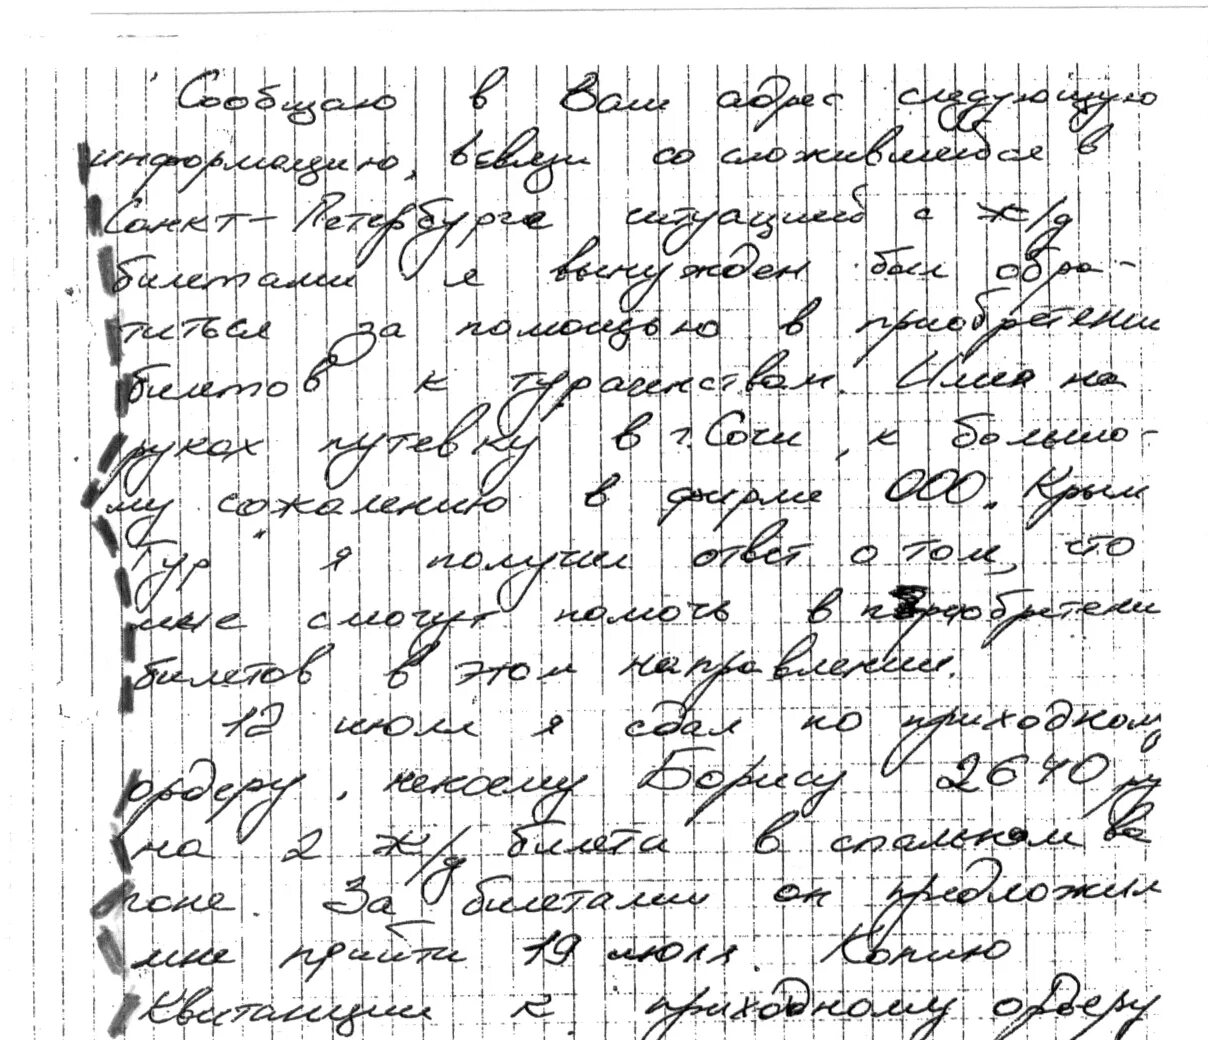 Сообщаю в Ваш адрес следующую
информацию, всвязи со сложившейся в
Санкт-Петербурге ситуацией с ж/д
билетами я вынужден был обра-
титься за помощью в приобретении
билетов к турагенствам. Имея на
руках путевку в г. Сочи, к большо-
му сожалению в фирме ООО „Крым
Тур" я получил ответ о том, что
мне смогут помочь в приобретени
билетов в этом направлении.
12 июля я сдал по приходному
ордеру, некоему Борису 2640 р
на 2 ж/д билета в спальном ва
гоне. За билетами он предложил
мне прийти 19 июля. Копию
Квитанции к приходному ордеру